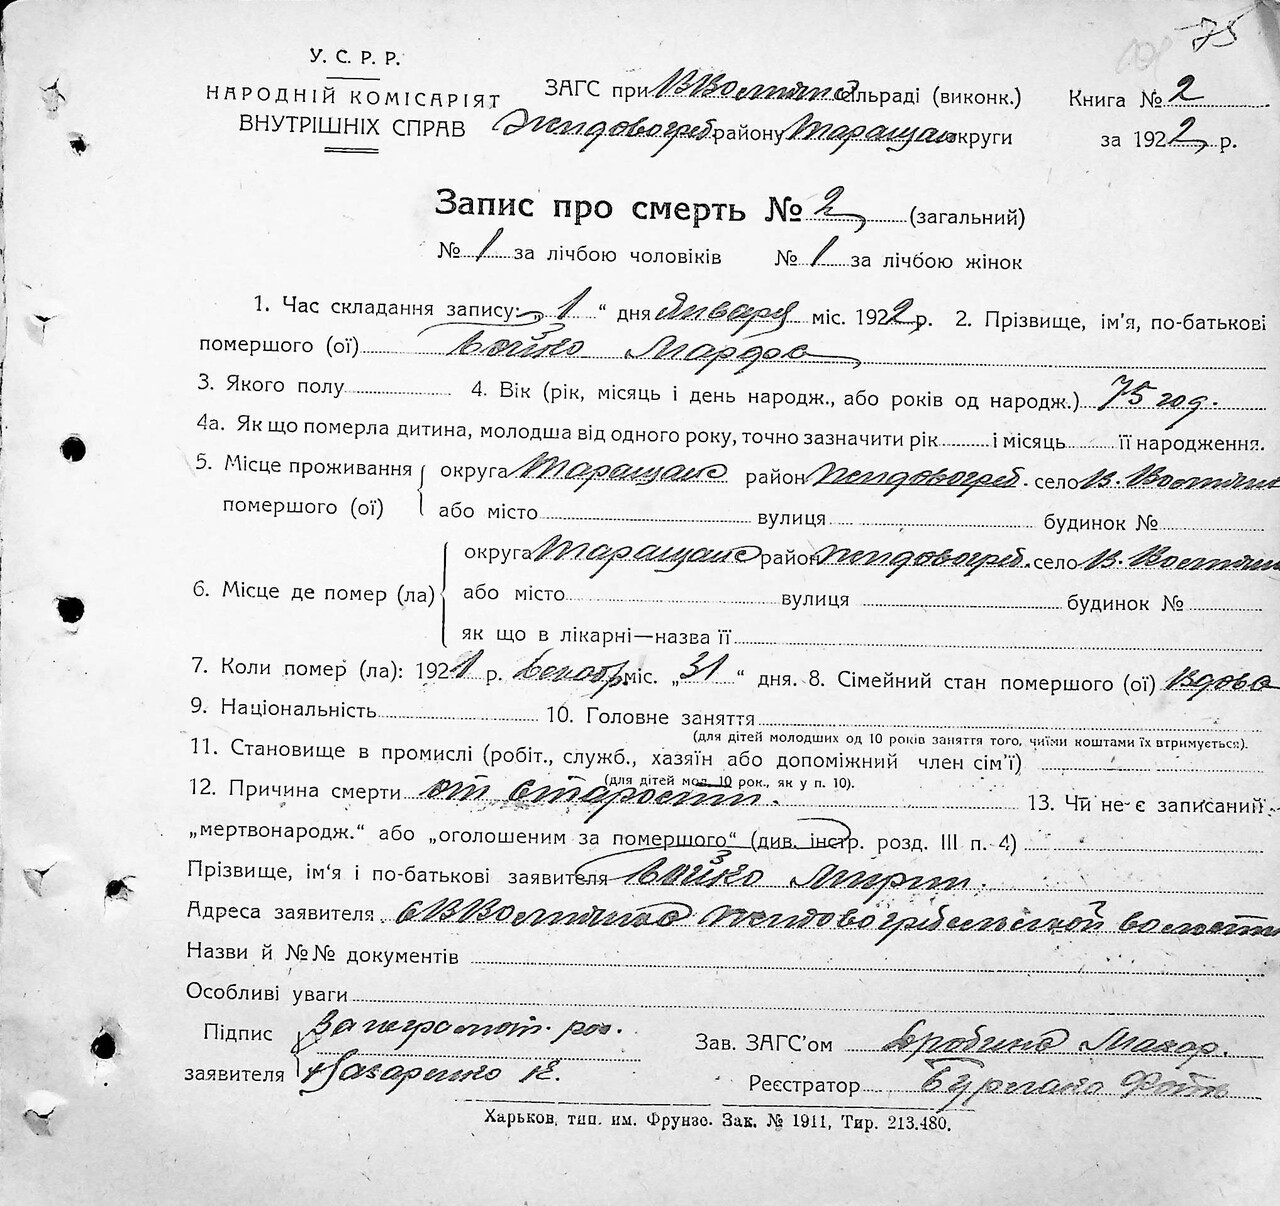 75
У. С. Р. Р.
НАРОДНІЙ КОМІСАРІЯТ
ВНУТРІШНІХ СПРАВ
ЗАГС при сільраді (виконк.)
району Таращан округи
Книга № 2
за 1922 р.
Запис про смерть № 2 (загальний)
№ 1 за лічбою чоловіків № 1 за лічбою жінок
1. Час складання запису: „ 1 “ дня Января міс. 1922 р. 2. Прізвище, ім'я, по-батькові
помершого (ої) Бойко Марфа
3. Якого полу 4. Вік (рік, місяць і день народж., або років од народж.) 75 год.
4а. Як що померла дитина, молодша від одного року, точно зазначити рік і місяць її народження.
5. Місце проживання округа Таращанс район село
помершого (ої) або місто вулиця будинок №
6. Місце де помер (ла) округа Таращанс район село
або місто вулиця будинок №
як що в лікарні—назва її
7. Коли помер (ла): 1921 р. Декабр міс. „ 31 “ дня. 8. Сімейний стан помершого (ої) Вдова
9. Національність 10. Головне заняття
(для дітей молодших од 10 років заняття того, чиїми коштами їх втримується).
11. Становище в промислі (робіт., служб., хазяїн або допоміжний член сім'ї)
(для дітей мол. 10 рок., як у п. 10).
12. Причина смерти от старости. 13. Чи не є записаний
„мертвонародж.“ або „оголошеним за помершого“ (див. інстр. розд. III п. 4)
Прізвище, ім'я і по-батькові заявителя Бойко
Адреса заявителя волости
Назви й №№ документів
Особливі уваги
Підпис За неграмот. рос.
заявителя Назаренко К.
Зав. ЗАГС'ом Макар.
Реєстратор
Харьков, тип. им. Фрунзе. Зак. № 1911, Тир. 213.480.